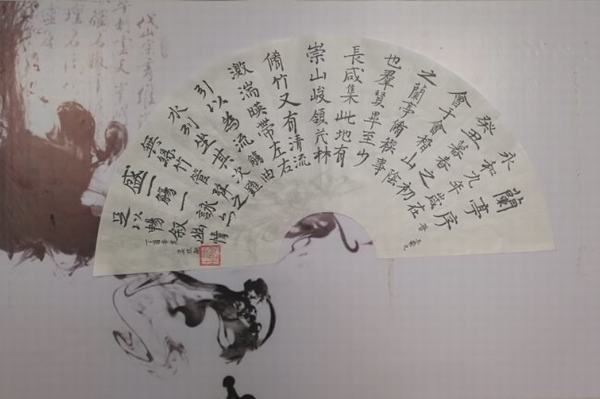 蘭亭序
永和九年歲在
癸丑暮春之初
會于會稽山陰
之蘭亭脩禊事
也羣賢畢至少
長咸集此地有
崇山峻領茂林
脩竹又有清流
激湍暎帶左右
引以為流觴曲
水列坐其次
無絲竹管之
盛一觴一詠
足以暢叙幽情